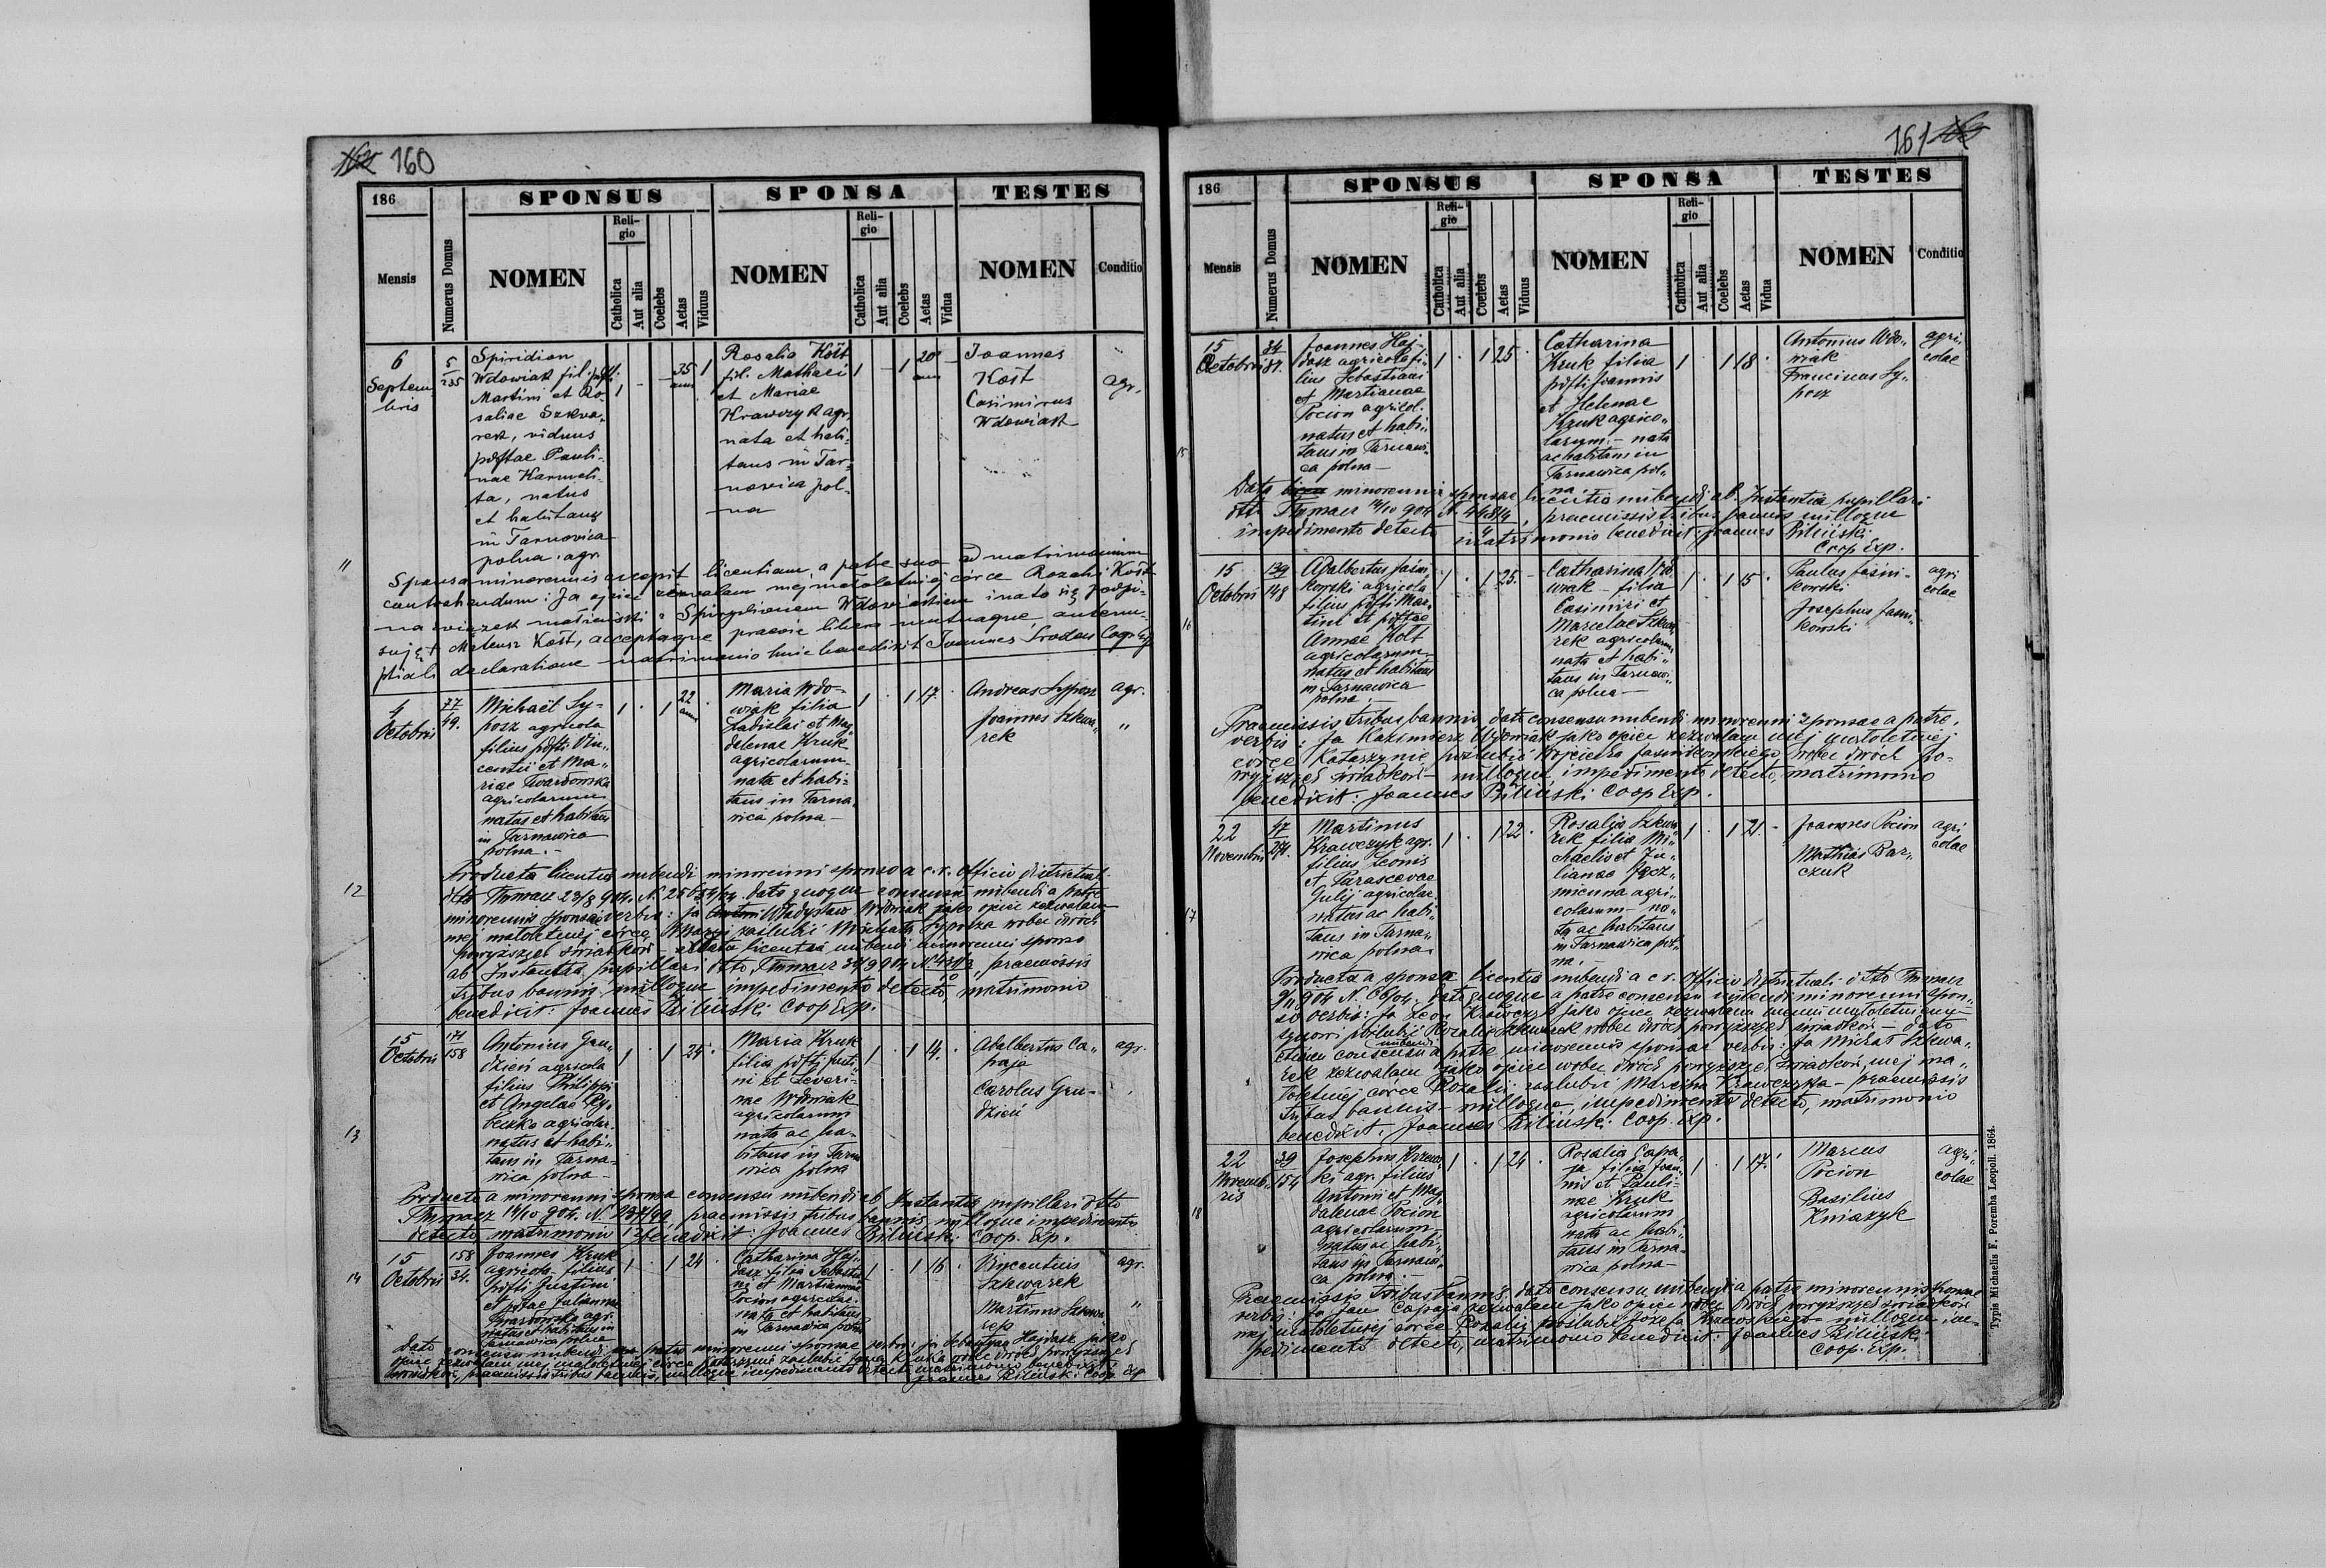 160
186
SPONSUS
SPONSA
TESTES
Mensis
Numerus Domus
NOMEN
Religio
Catholica
Aut alia
Coelebs
Aetas
Viduus
NOMEN
Religio
Catholica
Aut alia
Coelebs
Aetas
Vidua
NOMEN
Conditio
11
6
Septem
bris
5
235
Spiridion
Wdowiak fil. pffti
Martini et Ro-
saliae Szkwa-
rek, viduus
pdftae Pauli-
nae Karmeli-
ta, natus
et habitans
in Tarnovica
polna. agr.
1
35
ann
1
Rosalia Kost
fil. Mathaei
et Mariae
Krawczyk agr.
nata et habi-
tans in Tar-
nowica pol-
na
1
1
20
ann
Joannes
Kost
Casimirus
Wdowiak
agr.
Sponsa minorennis accepit licentiam a patre suo ad matrimonium
contrahendum: Ja ojciec zezwalam mej małoletniej córce Rozalii Kost
na związek małżeński z Spirydionem Wdowiakiem i na to się podpi-
suję + Mateusz Kost, acceptaque praevie libera mutuaque antenu-
ptiali declaratione matrimonio huic benedixit Joannes
12
4
Octobris
77
49.
Michaël Sy-
posz agricola
filius pdfti Vin-
centii et Ma-
riae Twardowska
agricolarum
natus et habitans
in Tarnawica
polna.-
1
1
22
ann
Maria Wdo-
wiak filia
Ladislai et Mag-
dalenae Kruk
agricolarum
nata et habi-
tans in Tarna-
wica polna-
1
1
17.
Andreas Syposz
Joannes Szkwa-
rek
agr.
"
Producta licentia nubendi minorenni sponso a c.r. officio districtuali
dto Tłumacz 23/8 904. N. dato quoque consensu nubendi a patre
minorennis sponsae verbis: ja Władysław Wdowiak jako ojciec zezwalam
mej małoletniej córce Maryi zaślubić Michała Syposza wobec dwóch
powyższych świadków - data licentia nubendi minorenni sponso
ab Instantia pupillari dto Tłumacz praemissis
tribus bannis nulloque impedimento detecto, matrimonio
benedixit: Joannes Biliński Coop Exp.
13
15
Octobris
171
158
Antonius Gru-
dzień agricola
filius Philippi
et Angelae Ry-
beczko agricolar.
natus et habi-
tans in Tarna-
wica polna-
1
1
24.
Maria Kruk
filia pdfti Justi-
ni et Severi-
nae Wdowiak
agricolarum
nata ac ha-
bitans in Tarna
wica polna
1
1
14.
Adalbertus Ca-
paja
Carolus Gru-
dzień
agr.
Producto a minorenni sponsa consensu nubendi ab Instantia pupillari dto
Tłumacz 14/10 904. N. 237/99, praemissis tribus bannis, nulloque impedimento
detecto matrimonio benedixit: Joannes Biliński Coop. Exp.
14
15
Octobris
158
34.
Joannes Kruk
agricola filius
pdfti Justini
et pdtae Julianae
Twardowska agr.
natus et habitans in
Tarnawica polna
1
1
24.
Catharina Haj-
dasz filia Sebastia-
ni et Martianae
Pocion agricolae.
nata et habitans
in Tarnawica polna
1
1
16.
Vincentius
Szkwarek
et
Martinus Szkwa
rek
agr.
"
Dato consensu nubendi patre minorenni sponsae verbis: ja Sebastyan Hajdasz jako
ojciec zezwalam mej małoletniej córce Katarzynie zaślubić Jana Kruka wobec dwóch powyższych
świadków, praemissis tribus bannis, nulloque impedimento detecto matrimonio benedixit:
Joannes Biliński Coop. Exp
161
186
SPONSUS
SPONSA
TESTES
Mensis
Numerus Domus
NOMEN
Religio
Catholica
Aut alia
Coelebs
Aetas
Viduus
NOMEN
Religio
Catholica
Aut alia
Coelebs
Aetas
Vidua
NOMEN
Conditio
15
15
Octobris
34
81.
Joannes Haj-
dasz agricola fi-
lius Sebastiani
et Martianae
Pocion agricol.
natus et habi-
tans in Tarnawi-
ca polna-
1
1
25.
Catharina
Kruk filia
pdfti Joannis
et Helenae
Kruk agrico-
larum.- nata
ac habitans in
Tarnawica pol-
na
1
1
18
Antonius Wdo-
wiak
Franciscus Sy-
posz
agri-
colae
Data minorennis sponsae licentia nubendi ab Instantia pupillari
dto Tłumacz 14/10 904 N. praemissis tribus bannis nulloque
impedimento detecto matrimonio benedixit: Joannes Biliński
Coop Exp.
16
15
Octobris
139
148
Adalbertus Jaśni-
kowski agricola
filius pdfti Mar-
tini et pdftae
Annae
agricolarum
natus et habitans
in Tarnawica
polna.
1
1
25.
Catharina Wdo-
wiak - filia
Casimiri et
Marcelae Szkwa-
rek agricolarum
nata et habi-
tans in Tarnawi-
ca polna-
1
1
15
Paulus Jaśni-
kowski
Josephus Jaśni-
kowski
agri
colae
Praemissis tribus bannis, dato consensu nubendi minorenni sponsae a patre,
verbis: Ja Kazimierz Wdowiak jako ojciec zezwalam mej małoletniej
córce Katarzynie poślubić Wojciecha Jaśnikowskiego wobec dwóch po-
wyższych świadków - nulloque impedimento detecto, matrimonio
benedixit: Joannes Biliński Coop Exp.
17
22
Novembris
47
271.
Martinus
Krawczyk agr.
filius Leonis
et Parascevae
Gulij agricolae
natus ac habi-
tans in Tarna-
wica polna.
1
1
22.
Rosalia Szkwa-
rek filia Mi-
chaelis et Ju-
lianae Jęcz-
mienna agri-
colarum - na-
ta ac habitans
in Tarnawica pol-
na.-
1
1
21.
Joannes Pocion
Mathias Bar-
czuk
agri
colae
Producta a sponsa licentia nubendi a c.r. Officio districtuali dto Tłumacz
9/11 904 N. dato quoque a patre consensu nubendi minorenni spon-
so verbis: Ja Leon Krawczyk jako ojciec zezwalam memu małoletniemu
synowi poślubić Rozalię Szkwarek wobec dwóch powyższych świadków - dato
etiam consensu nubendi a patre minorennis sponsae verbis: Ja Michał Szkwa-
rek zezwalam jako ojciec wobec dwóch powyższych świadków, mej ma-
łoletniej córce Rozalii zaślubić Marcina Krawczyka - praemissis
tribus bannis - nulloque impedimento detecto, matrimonio
benedixit: Joannes Biliński Coop. Exp.
18
22
Novemb-
ris
39
154
Josephus Krzews-
ki agr. filius
Antonii et Mag-
dalenae Pocion
agricolarum
natus ac habi-
tans in Tarnawi-
ca polna.-
1
1
24.
Rosalia Capa-
ja filia Joan-
nis et Pauli-
nae Kruk
agricolarum
nata ac habi-
tans in Tarna-
wica polna-
1
1
17.
Marcus
Pocion
Basilius
Kniazyk
agri-
colae
Praemissis tribus bannis, dato consensu nubendi a patre minorennis sponsae
verbis: Ja Jan Capaja zezwalam jako ojciec wobec dwóch powyższych świadków
mej małoletniej córce Rozalii poślubić Józefa Krzewskiego - nulloque im-
pedimento detecto, matrimonio benedixit: Joannes Biliński
Coop. Exp.
Typis Michaelis F. Poremba Leopoli. 1864.